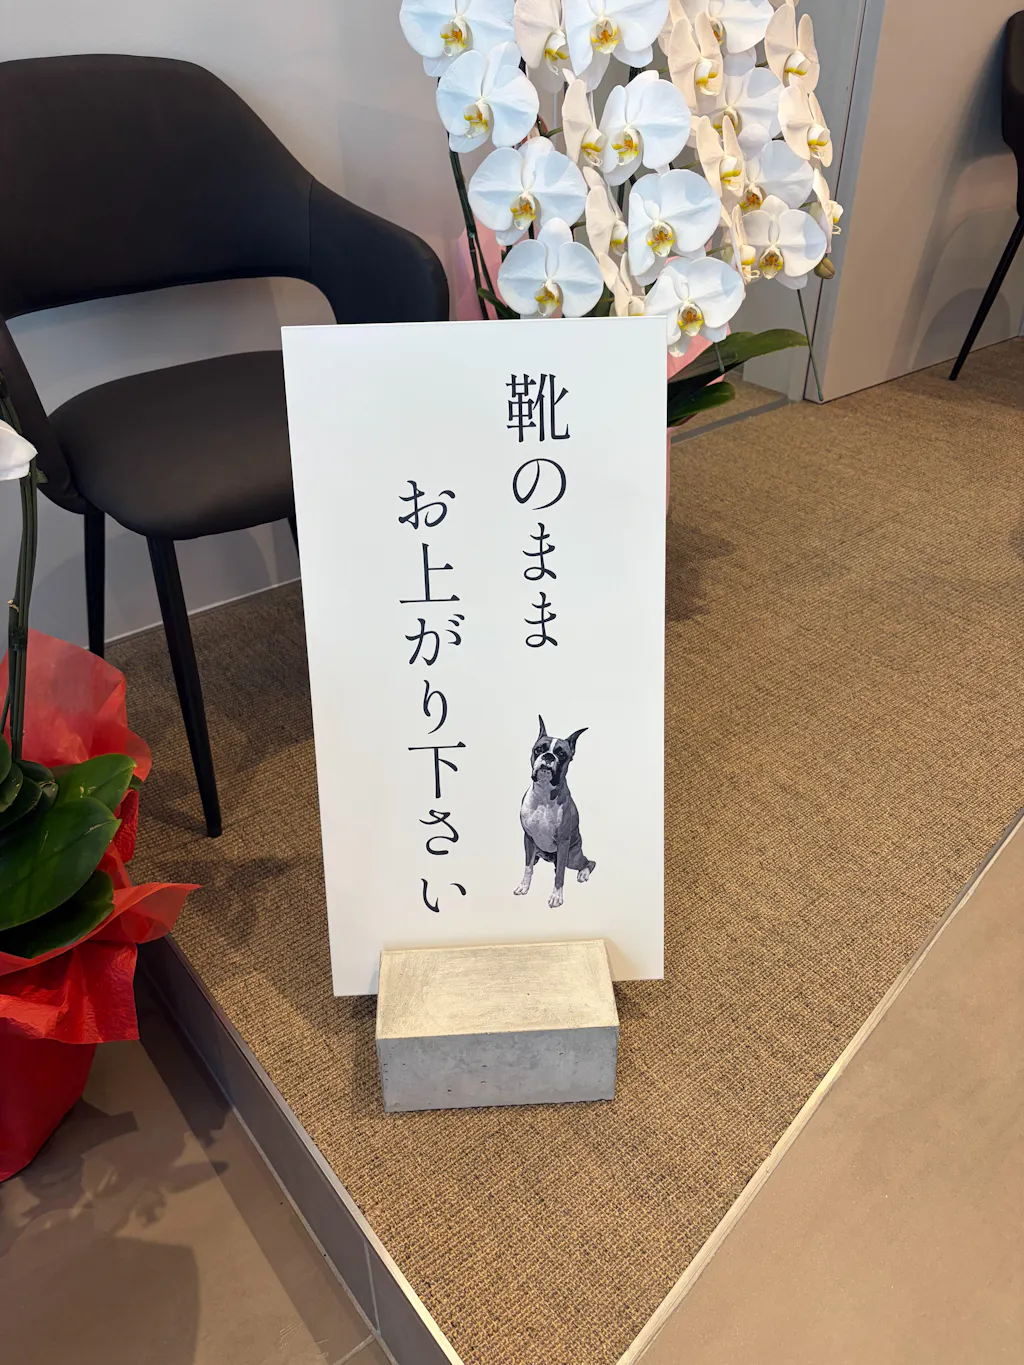 靴のまま
お上がり下さい